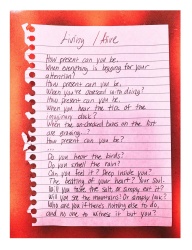 Living / Alive
How present can you be,
When everything is begging for your
attention?
How present can you be,
When you're obsessed with doing?
How present can you be,
When you hear the tick of the
imaginary clock?
When the unchecked boxes on the list
are growing...?
How present can you be?
...
Do you hear the birds?
Do you smell the rain?
Can you feel it? Deep inside you?
The beating of your heart? Your soul.
Will you taste the salt or simply eat it?
Will you see the mountains? Or simply look?
Who are you if there's nothing else to do,
and no one to witness it but you?